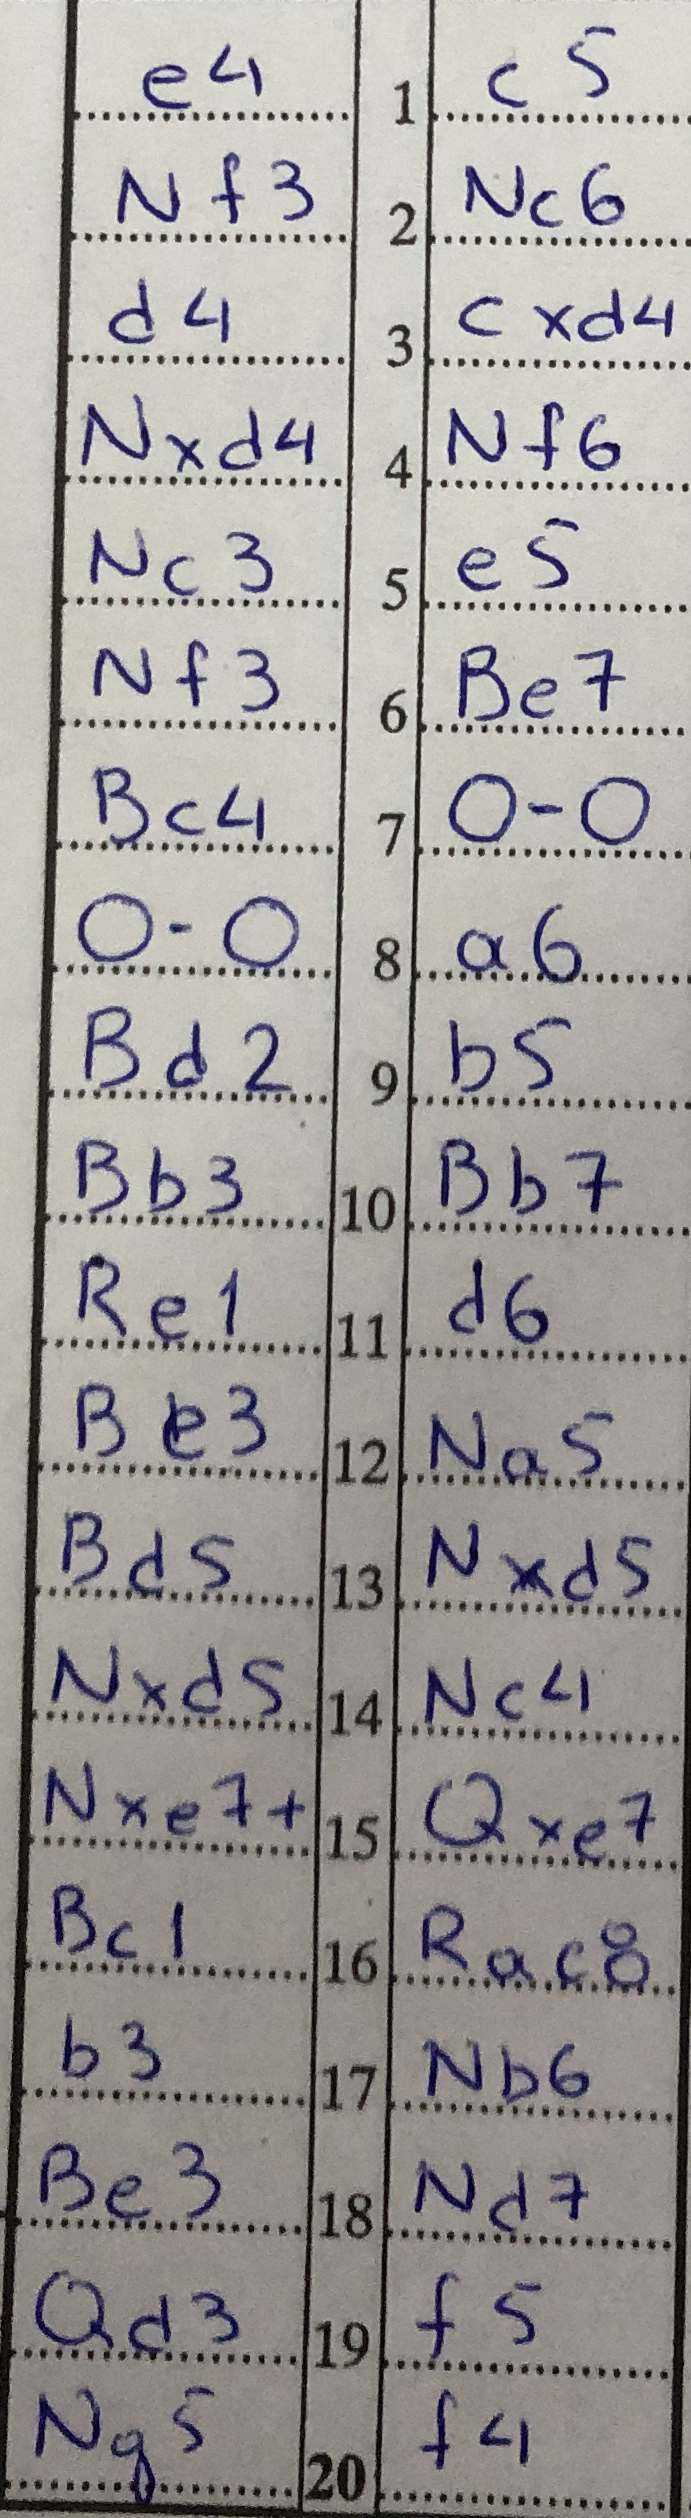 e4 1 c5
Nf3 2 Nc6
d4 3 cxd4
Nxd4 4 Nf6
Nc3 5 e5
Nf3 6 Be7
Bc4 7 O-O
O-O 8 a6
Bd2 9 b5
Bb3 10 Bb7
Re1 11 d6
Be3 12 Na5
Bd5 13 Nxd5
Nxd5 14 Nc4
Nxe7+ 15 Qxe7
Bc1 16 Rac8
b3 17 Nb6
Be3 18 Nd7
Qd3 19 f5
Ng5 20 f4